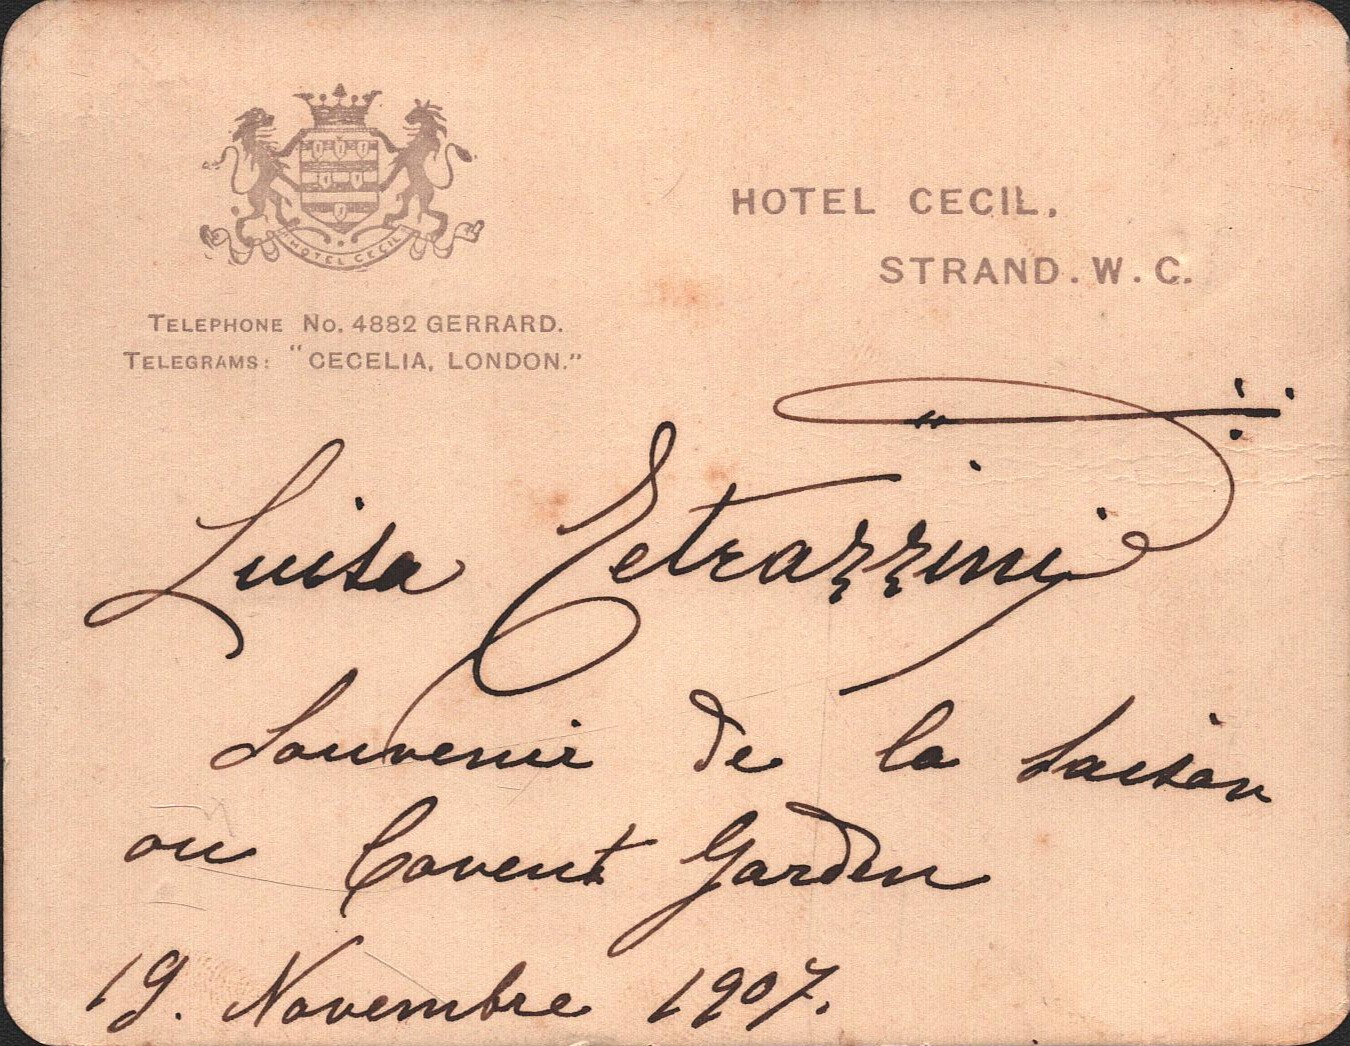 HOTEL CECIL
HOTEL CECIL,
STRAND. W. C.
TELEPHONE No. 4882 GERRARD.
TELEGRAMS: "CECELIA, LONDON."
Luisa Tetrazzini
Souvenir de la saison
au Covent Garden
19. Novembre 1907.